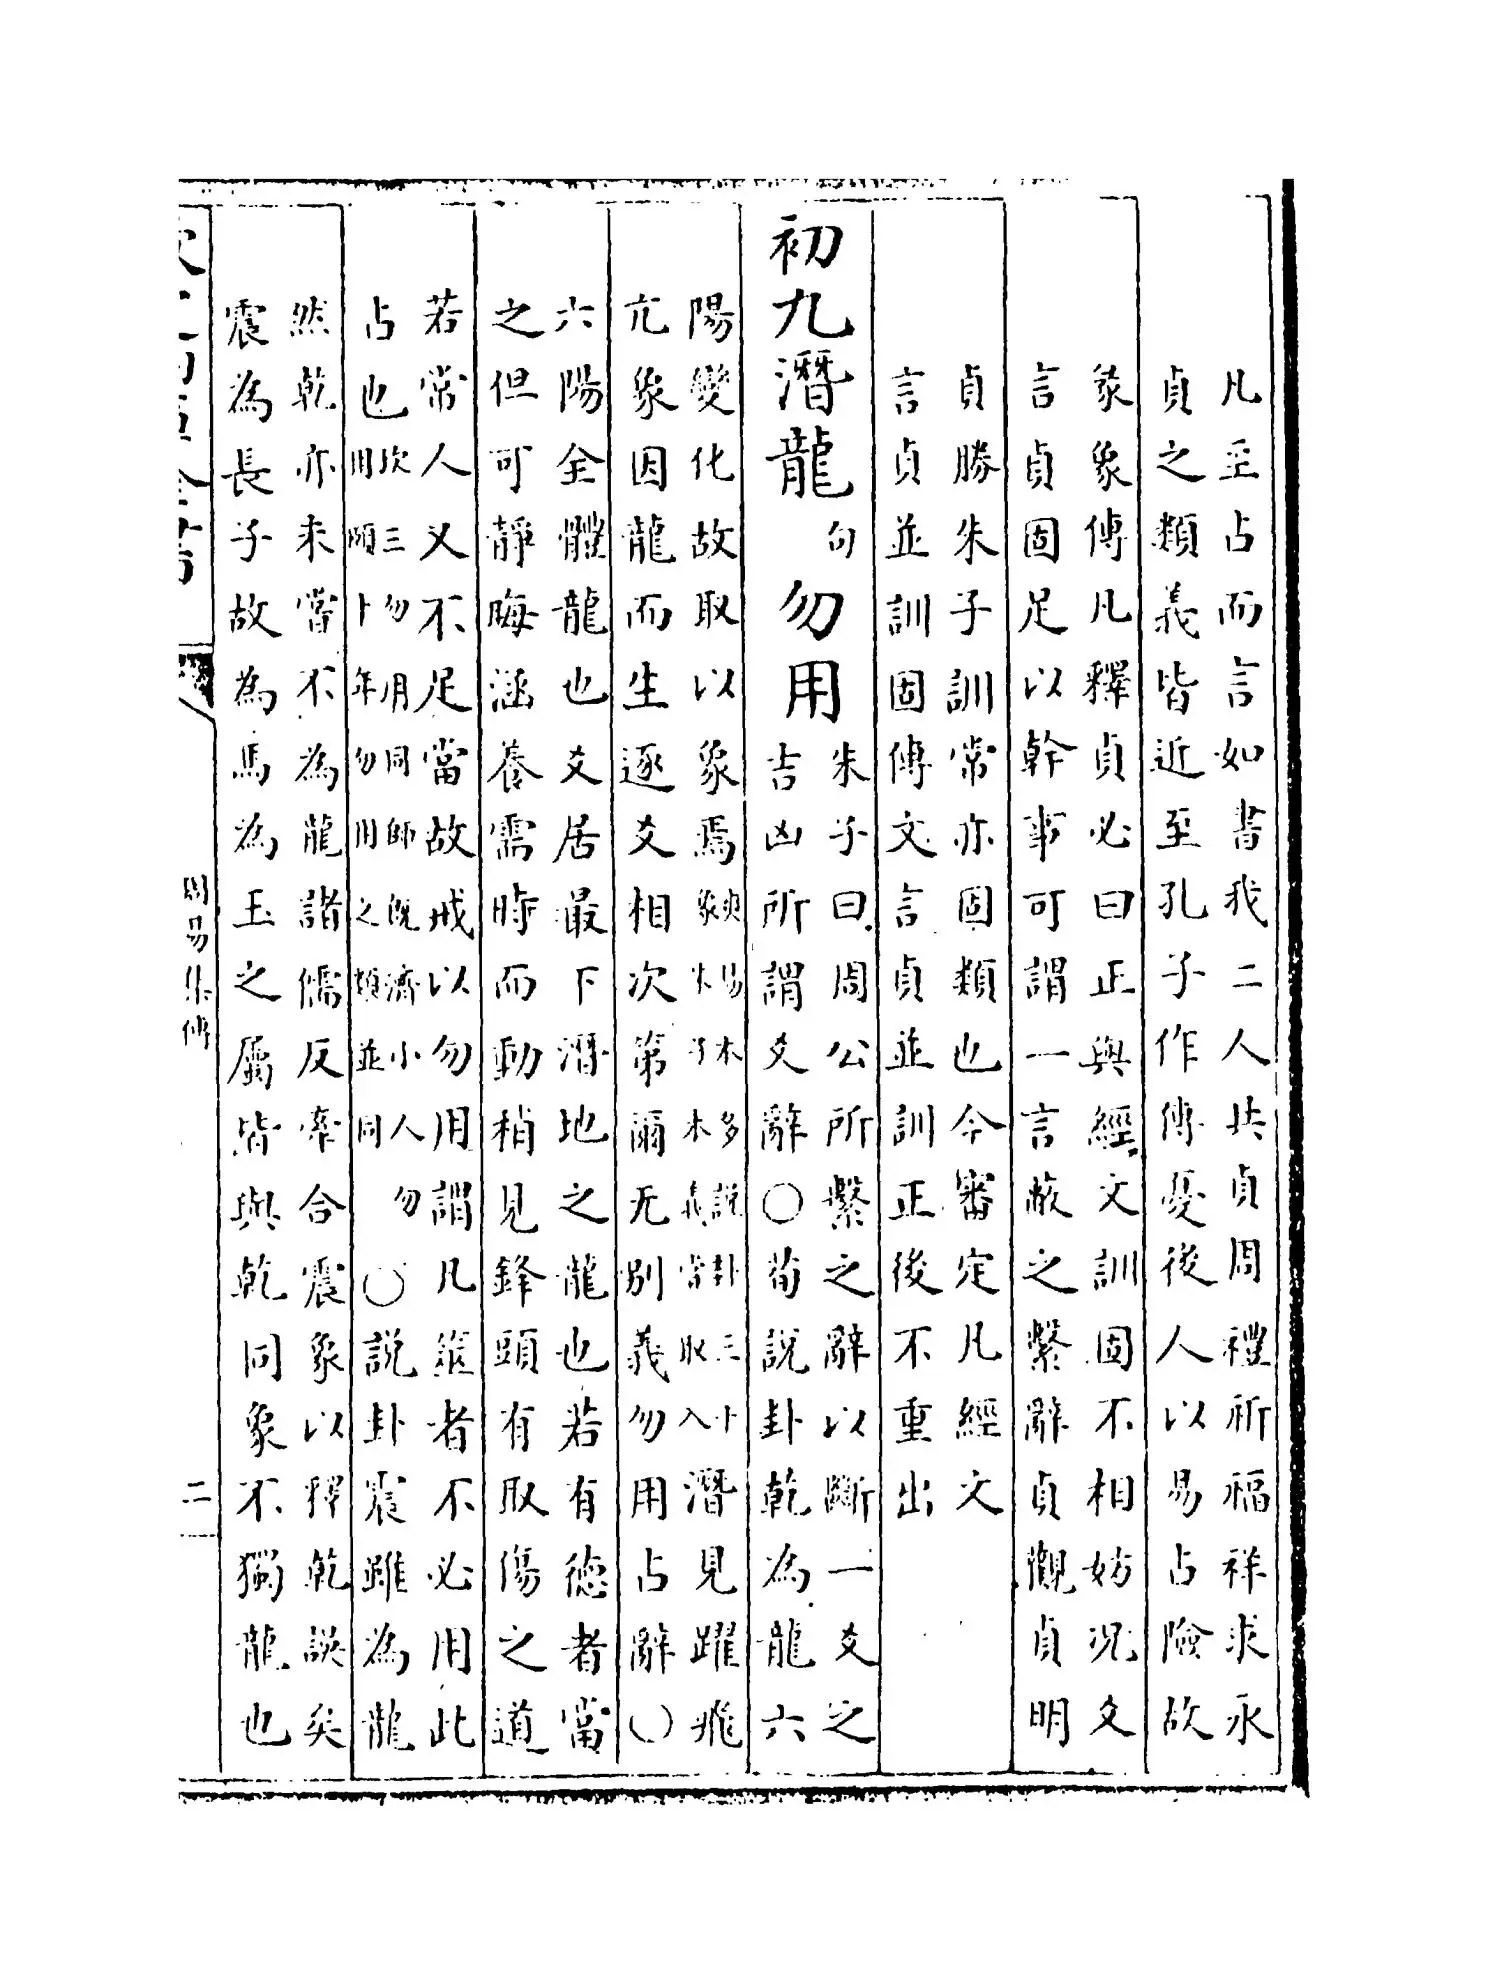 凡至占而言如書我二人共貞周禮祈福祥求永
貞之類義皆近至孔子作傳憂後人以易占險故
彖象傳凡釋貞必曰正與經文訓固不相妨况文
言貞固足以幹事可謂一言蔽之繫辭貞觀貞明
貞勝朱子訓常亦固類也今審定凡經文
言貞並訓固傳文言貞並訓正後不重出
初九潛龍句勿用
朱子曰周公所繫之辭以斷一爻之
吉凶所謂爻辭○荀說卦乾為龍六
陽變化故取以象焉
木多說卦三十
象
木義皆取入
潛見躍飛
亢象因龍而生逐爻相次第爾无别義勿用占辭○
六陽全體龍也爻居最下潛地之龍也若有德者當
之但可靜晦涵養需時而動稍見鋒頭有取傷之道
若常人又不足當故戒以勿用謂凡筮者不必用此
占也
坎三勿用同師既濟小人勿
用頤十年勿用之類並同
○說卦震雖為龍
然乾亦未嘗不為龍諸儒反牽合震象以釋乾誤矣
震為長子故為馬為玉之屬皆與乾同象不獨龍也
周易集傳
二